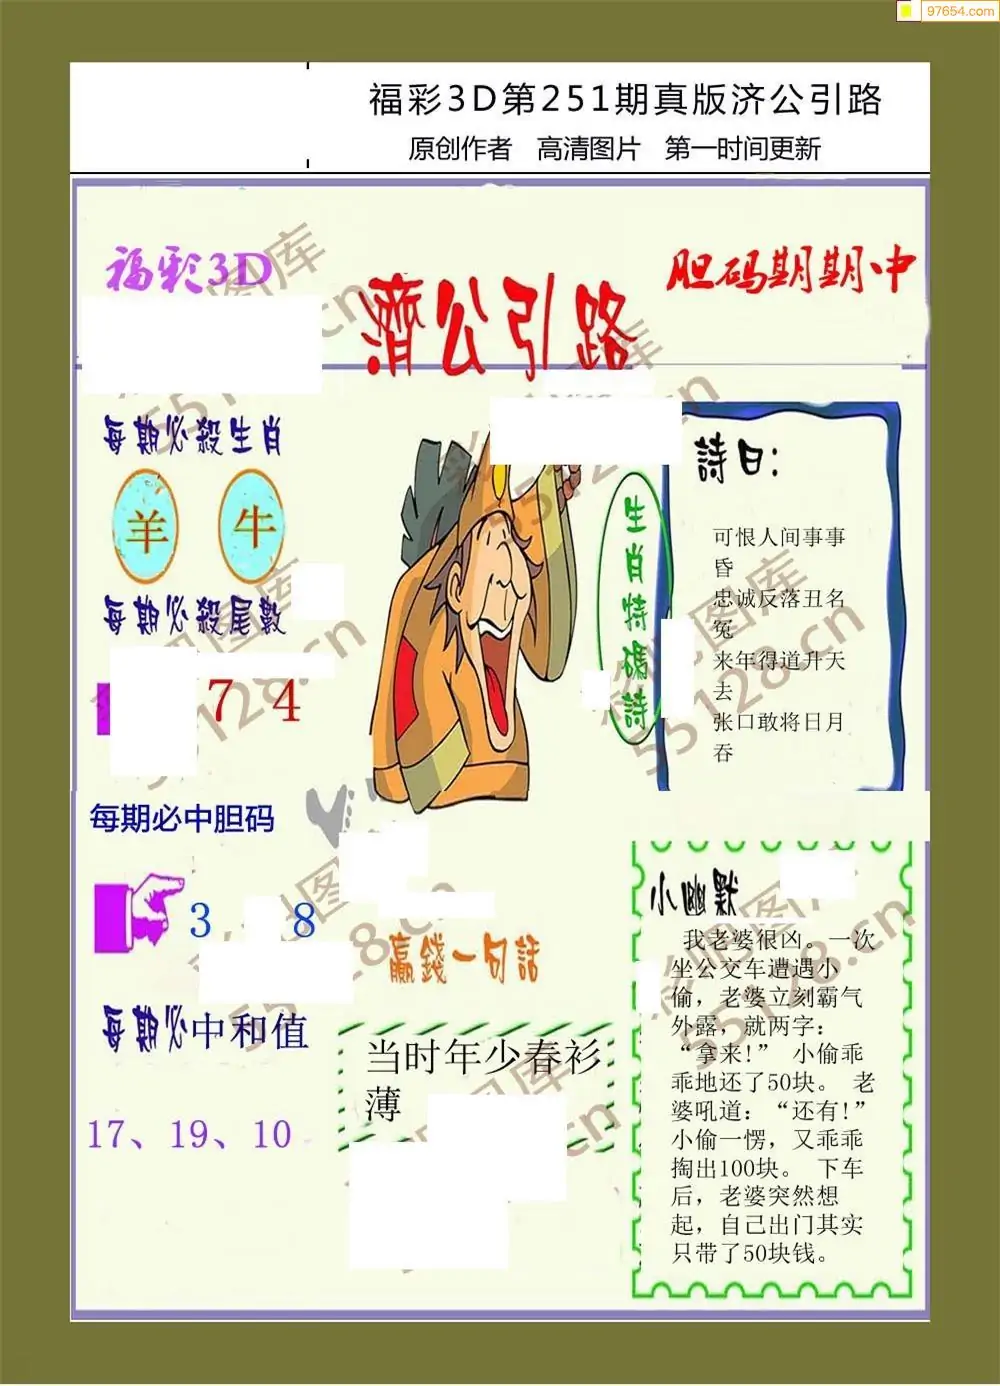 97654.com
福彩3D第251期真版济公引路
原创作者 高清图片 第一时间更新
福彩3D
胆码期期中
濟公引路
每期必殺生肖
羊 牛
每期必殺尾數
7 4
每期必中胆码
3 8
每期必中和值
17、19、10
生肖特碼詩
詩曰:
可恨人间事事
昏
忠诚反落丑名
冤
来年得道升天
去
张口敢将日月
吞
赢錢一句話
当时年少春衫
薄
小幽默
我老婆很凶。一次
坐公交车遭遇小
偷，老婆立刻霸气
外露，就两字：
“拿来!” 小偷乖
乖地还了50块。 老
婆吼道：“还有!”
小偷一愣，又乖乖
掏出100块。 下车
后，老婆突然想
起，自己出门其实
只带了50块钱。
55128.cn
55128.cn
55128.cn
55128.cn